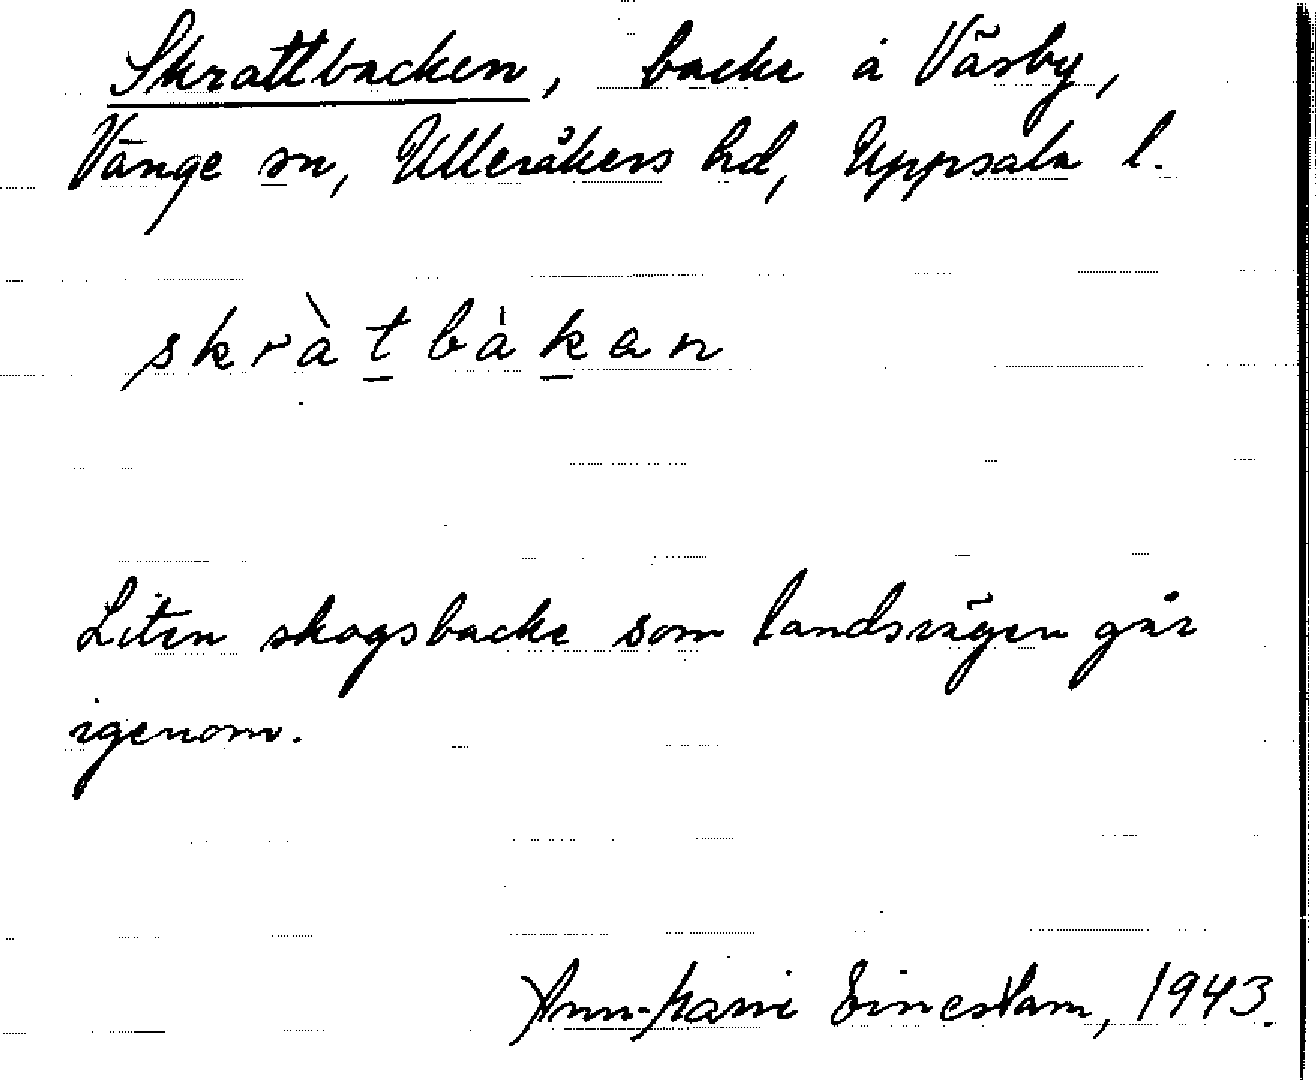 Skrattbacken, backe å Väsby,
Vänge sn, Ulleråkers hd, Uppsala l.
skràtbàkan
Liten skogsbacke som landsvägen går
igenom.
Ann-Marie Einestam, 1943.